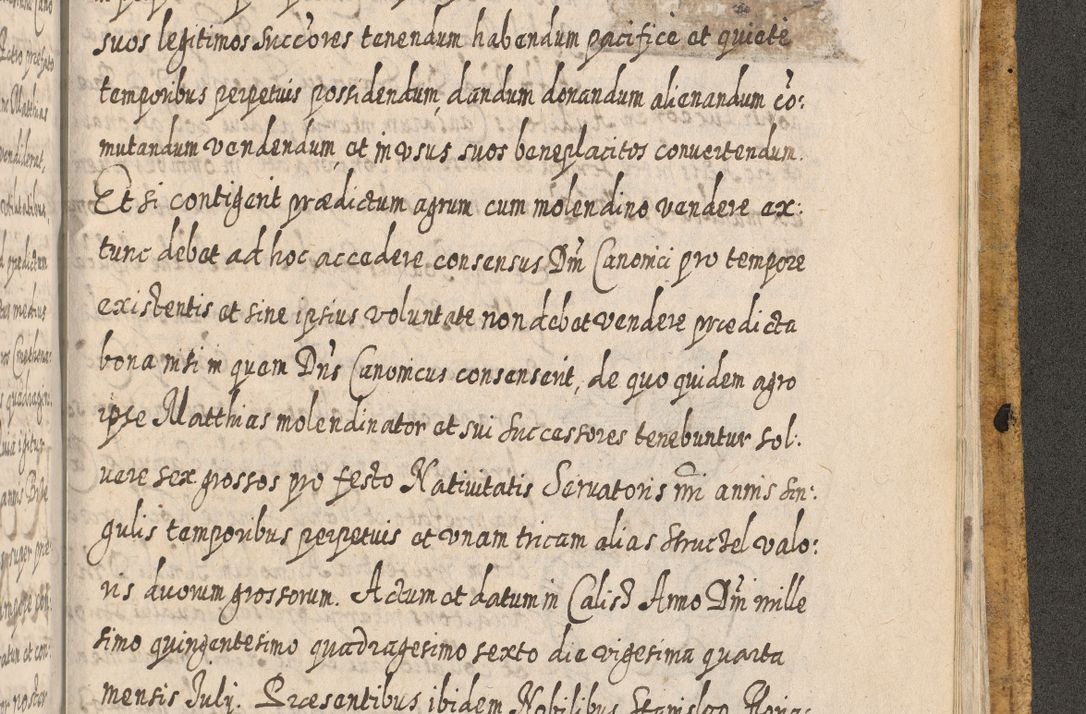 suos legitimos Succ'ores tenendum habendum pacifice et quiete
temporibus perpetuis possidendum, dandum donandum alienandum cō:
mutandum vendendum, et in usus suos beneplacitos convertendum.
Et si contigerit prædictum agrum cum molendino vendere ex:
tunc debet ad hoc accedere consensus Dni Canonici pro tempore
existentis et sine ipsius voluntate non debet vendere prædicta
bona nisi in quem Dns Canonicus consenserit, de quo quidem agro
ipse Matthias molendinator et sui Successores tenebuntur sol:
vere sex grossos pro festo Nativitatis Servatoris nri annis sin:
gulis temporibus perpetuis et unam tricam alias Struchel valo:
ris duorum grossorum. Actum et datum in Calisch Anno Dni mille
simo quingentesimo quadragesimo sexto die vigesima quarta
mensis July. Præsentibus ibidem Nobilibus Stanislao